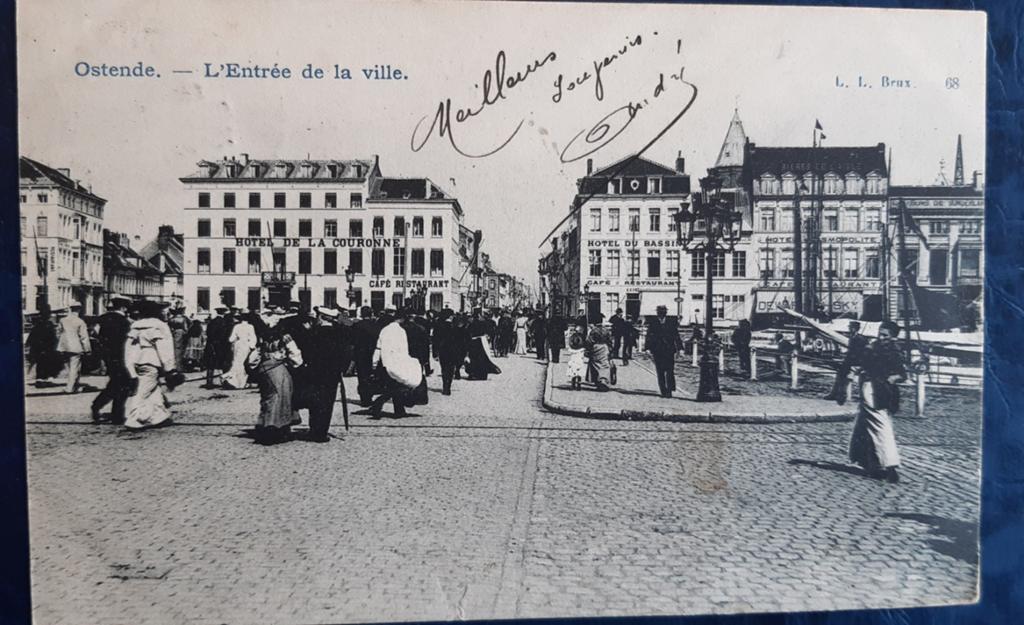 Ostende. — L'Entrée de la ville.
L. L. Brux. 68
Meilleurs
Souvenirs.
HOTEL DE LA COURONNE
CAFÉ RESTAURANT
HOTEL DU BASSIN
CAFÉ RESTAURANT